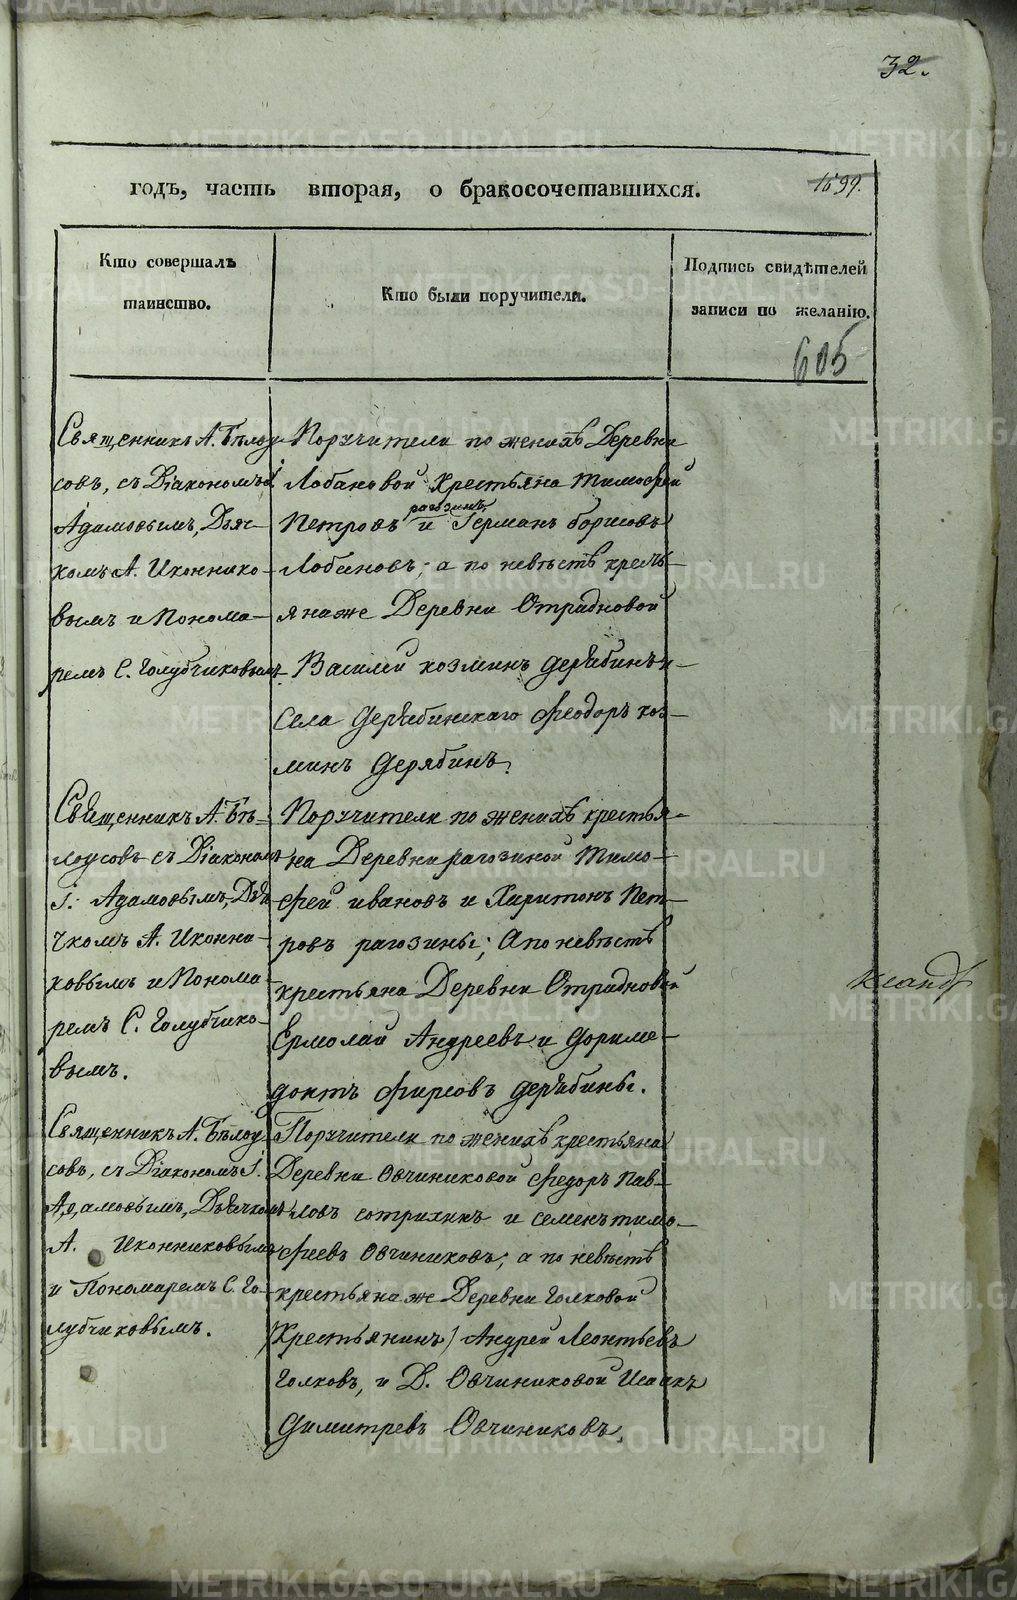 32.
годъ, часть вторая, о бракосочетавшихся.
1599.
Кто совершалъ
таинство.
Кто были поручители.
Подпись свидѣтелей
записи по желанію.
605
Священникъ А. Бѣлоу
совъ, съ Діакономъ І.
Адамовымъ, Дьяч-
комъ А. Иконнико-
вымъ и Понома-
ремъ С. Голубчиковымъ.
Поручители по женихѣ Деревни
Лобановой Крестьяна Тимофей
рагозинъ,
Петровъ и Германъ борисовъ
Лобановъ; а по невѣстѣ крестъ-
янаже Деревни Отрадновой
Василей козминъ дерябинъ и
села дерябинскаго Феодоръ коз-
минъ дерябинъ.
Священникъ А. Бѣ-
лоусовъ съ Діакономъ
І. Адамовымъ, Дья-
чкомъ А. Иконни-
ковымъ и Понома-
ремъ С. Голубчико-
вымъ.
Поручители по женихѣ крестья-
на Деревни рагозиной Тимо-
фей ивановъ и Харитонъ Пет-
ровъ рагозины; А по невѣстѣ
крестьяна Деревни Отрадновой
Ермолай Андреевъ и дориме-
донтъ Фирсовъ дерябины.
Священникъ А. Бѣлоу
совъ, съ Діакономъ І.
Адамовымъ, Дьячкомъ
А. Иконниковымъ
и Пономаремъ С. Го-
лубчиковымъ.
Поручители по женихѣ крестьяна
Деревни Овчиниковой Федоръ Пав-
ловъ сотрихинъ и семенъ тимо-
феевъ Овчиниковъ; а по невѣстѣ
крестьяна же Деревни Голковой
(Крестьянинъ) Андрей Леонтьевъ
Голковъ, и Д. Овчиниковой Исаакъ
Димитревъ Овчиниковъ.
METRIKI.GASO-URAL.RU